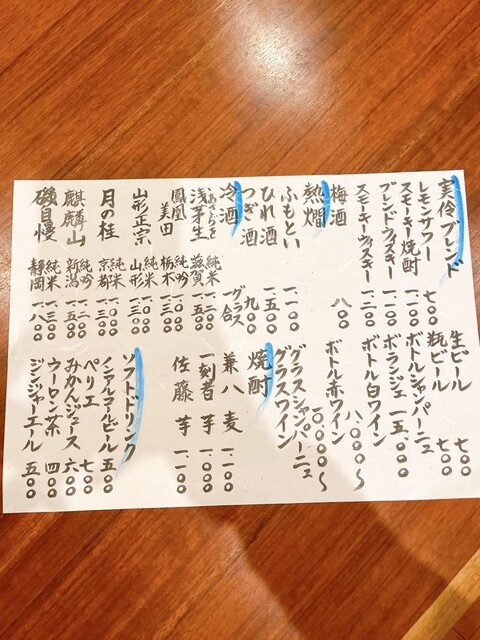 実伶ブレンド
レモンサワー 七〇〇
スモーキー焼酎 一、一〇〇
ブレンドウィスキー 一、二〇〇
スモーキーウィスキー 一、二〇〇
梅酒 八〇〇
熱燗
ふもとい 一、一〇〇
ひれ酒 一、五〇〇
つぎ酒 九〇〇
冷酒 グラス 一合
浅茅生 純米 滋賀 一、二〇〇
鳳凰美田 純吟 栃木 一、五〇〇
山形正宗 純米 山形 一、三〇〇
月の桂 純米 京都 一、三〇〇
麒麟山 純吟 新潟 一、五〇〇
磯自慢 純米 静岡 一、八〇〇
生ビール 七〇〇
瓶ビール 七〇〇
ボトルシャンパーニュ
ボランジェ 一五、〇〇〇
ボトル白ワイン 八、〇〇〇〜
ボトル赤ワイン 一〇、〇〇〇〜
グラスシャンパーニュ
グラスワイン
焼酎
兼八 麦 一、一〇〇
一刻者 芋 一、〇〇〇
佐藤 芋 一、一〇〇
ソフトドリンク
ノンアルコールビール 五〇〇
ペリエ 七〇〇
みかんジュース 六〇〇
ウーロン茶 四〇〇
ジンジャーエール 五〇〇